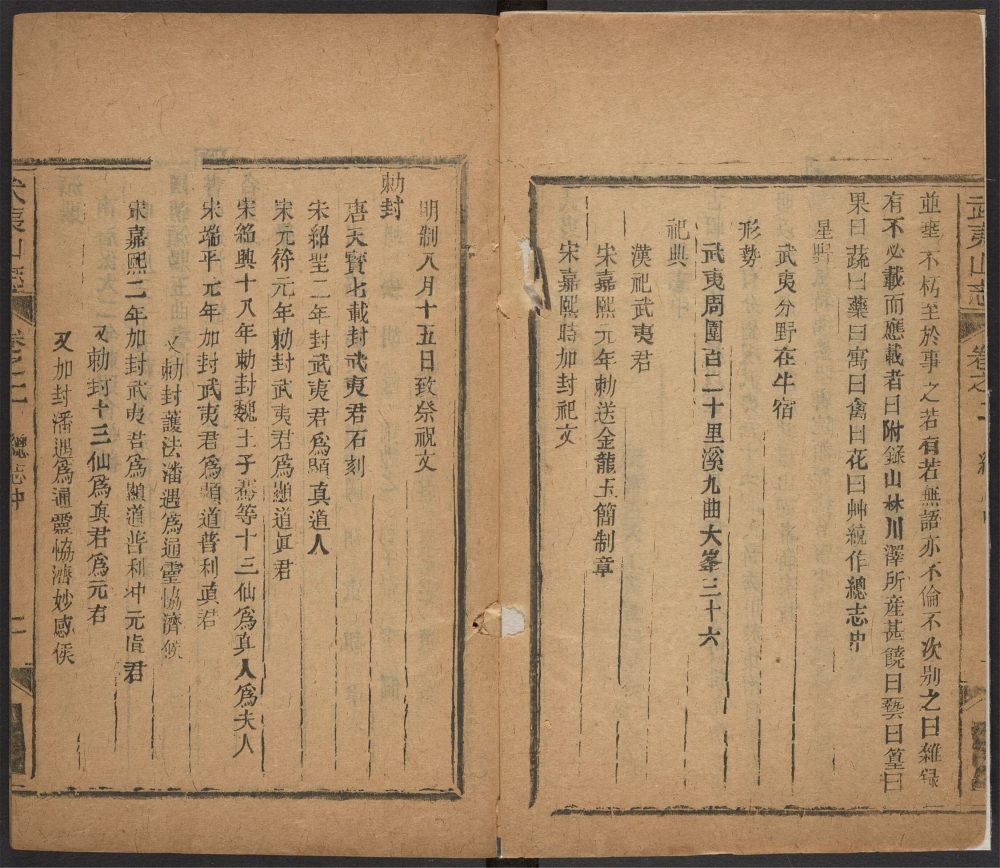 武夷山志 卷之一
並壅不朽至於事之若有若無語亦不倫不次别之曰雜錄
有不必載而應載者曰附錄山林川澤所産甚饒曰藝曰篁曰
果曰蔬曰藥曰寓曰禽曰花曰艸統作總志中
星野
武夷分野在牛宿
形勢
武夷周圍百二十里溪九曲大峯三十六
祀典
漢祀武夷君
宋嘉熙元年勅送金龍玉簡制章
宋嘉熙時加封祀文
明制八月十五日致祭祝文
勅封
唐天寶七載封武夷君石刻
宋紹聖二年封武夷君爲顯真道人
宋元符元年勅封武夷君爲顯道眞君
宋紹興十八年勅封魏王子騫等十三仙爲真人爲夫人
宋端平元年加封武夷君爲顯道普利眞君
又勅封護法潘遇爲通靈協濟侯
宋嘉熙二年加封武夷君爲顯道普利冲元眞君
又勅封十三仙爲真君爲元君
又加封潘遇爲通靈協濟妙感侯
夷山志 卷之一 總志中 二